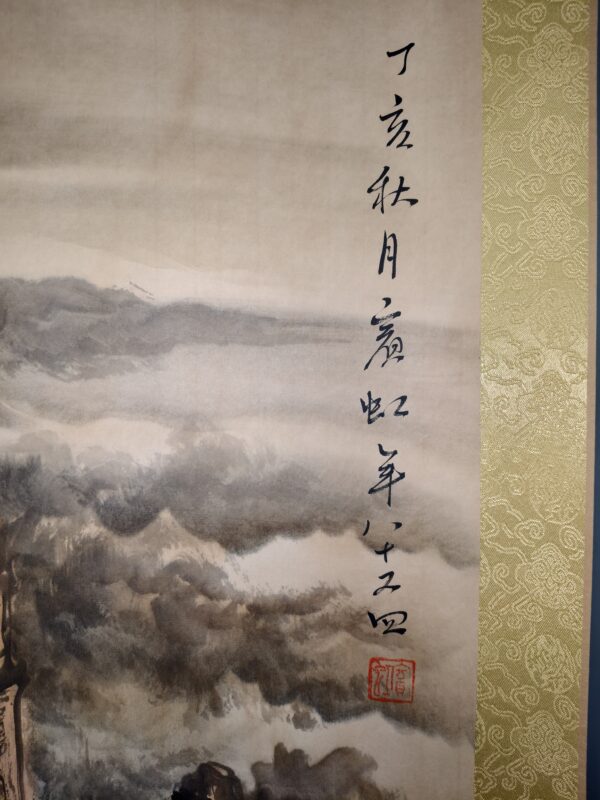 丁亥秋月賓虹年八十又四
賓虹